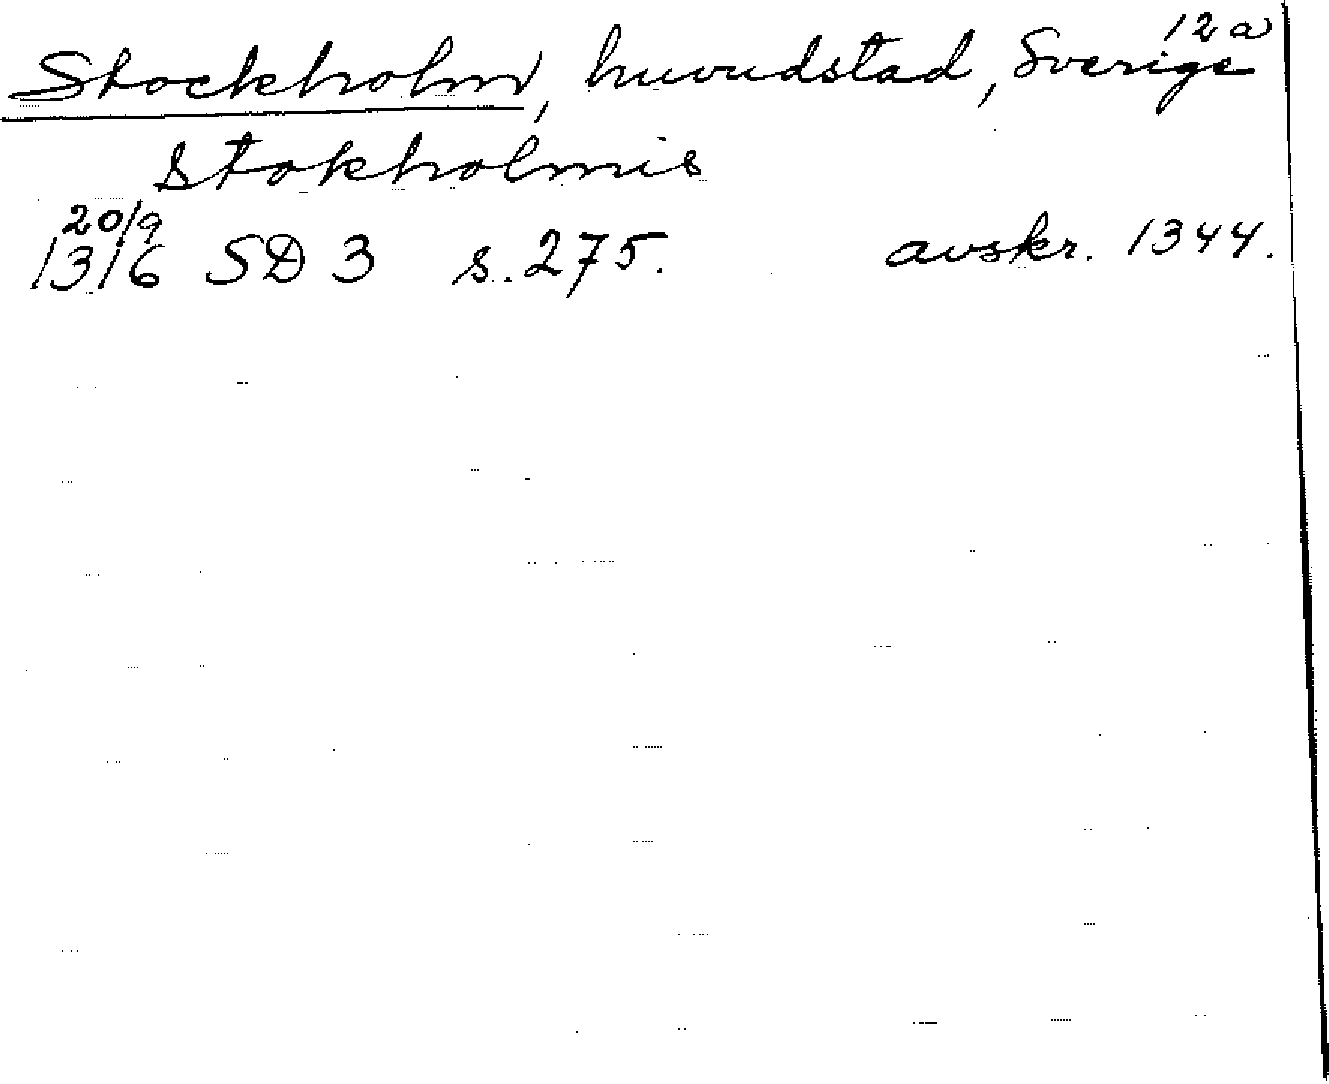 12a
Stockholm, huvudstad, Sverige
Stokholmis
20/9
1316 SD 3 s. 275. avskr. 1344.